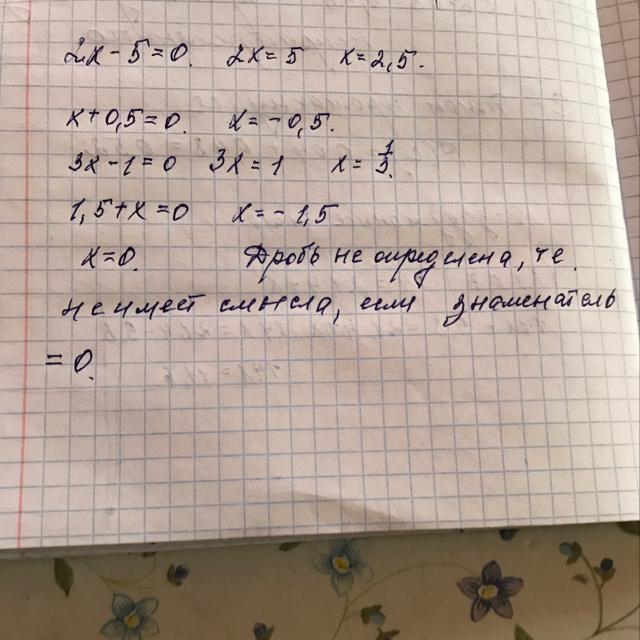 2x - 5 = 0. 2x = 5 x = 2,5.
x + 0,5 = 0. x = - 0,5.
3x - 1 = 0 3x = 1 x = 1/3.
1,5 + x = 0 x = - 1,5
x = 0. Дробь не определена, т е.
не имеет смысла, если знаменатель
= 0.